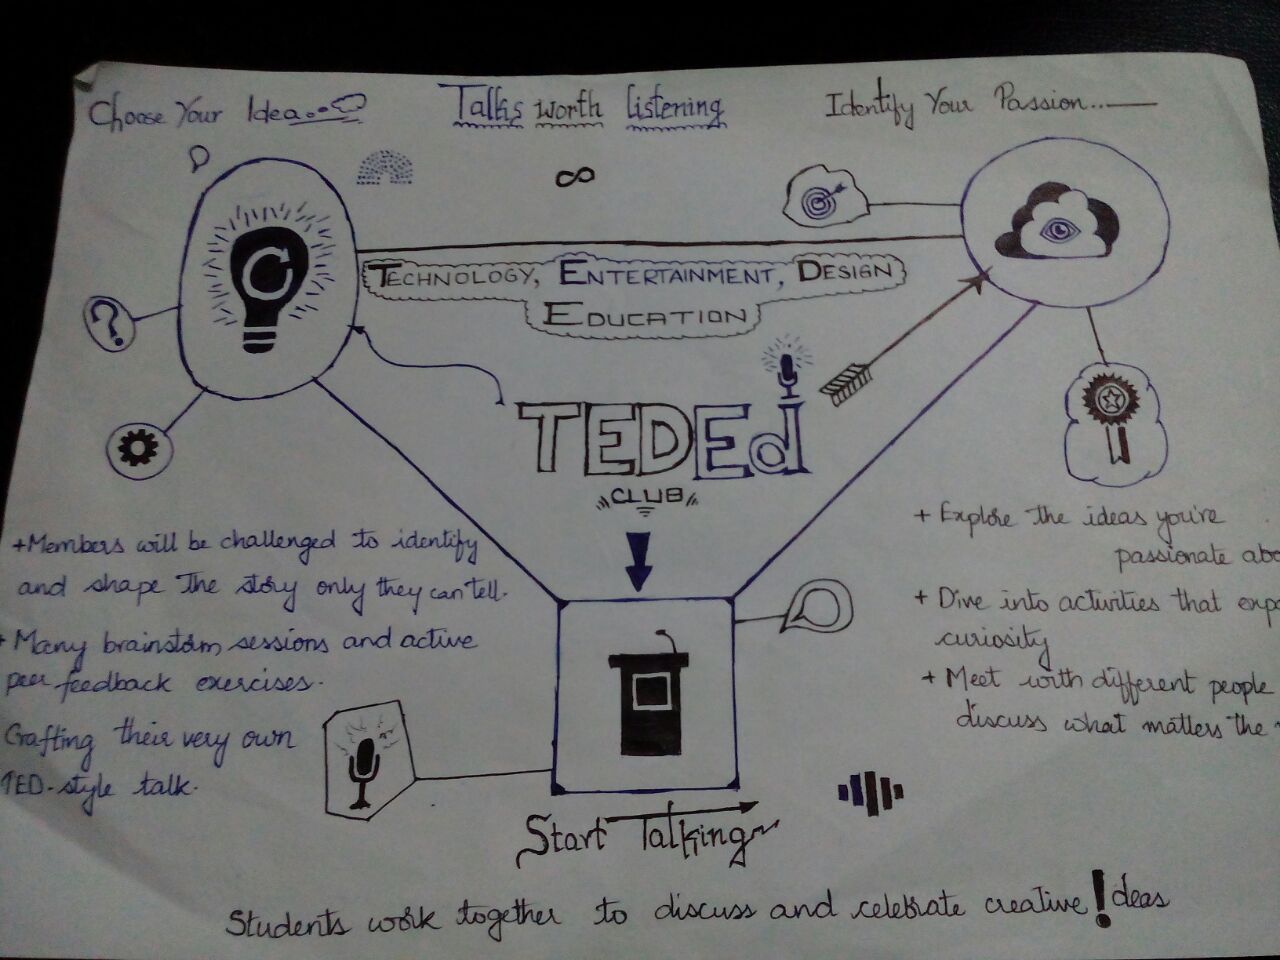 Choose Your Idea...
Talks worth listening
Identify Your Passion...
TECHNOLOGY, ENTERTAINMENT, DESIGN
EDUCATION
?
TEDEd
CLUB
+Members will be challenged to identify
and shape the story only they can tell.
+ Many brainstorm sessions and active
peer feedback exercises.
Crafting their very own
TED-style talk.
+ Explore the ideas you're
passionate
+ Dive into activities that
curiosity
+ Meet with different people
discuss what matters the
Start Talking
Students work together to discuss and celebrate creative !deas